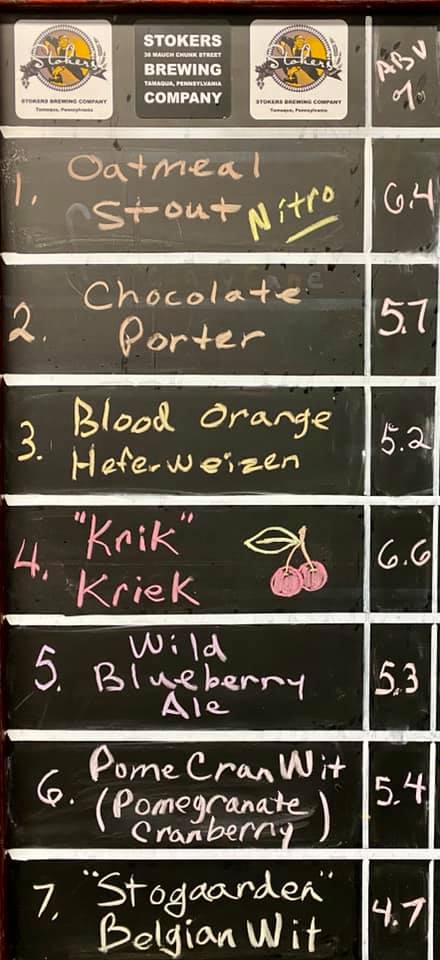 Stokers
STOKERS BREWING COMPANY
Tamaqua, Pennsylvania
STOKERS
36 MAUCH CHUNK STREET
BREWING
TAMAQUA, PENNSYLVANIA
COMPANY
Stokers
STOKERS BREWING COMPANY
Tamaqua, Pennsylvania
ABV
%
1. Oatmeal
Stout Nitro
6.4
2. Chocolate
Porter
5.7
3. Blood Orange
Hefeweizen
5.2
4. "Krik"
Kriek
6.6
5. Wild
Blueberry
Ale
5.3
6. PomeCranWit
(Pomegranate
Cranberry)
5.4
7. "Stogaarden"
Belgian Wit
4.7